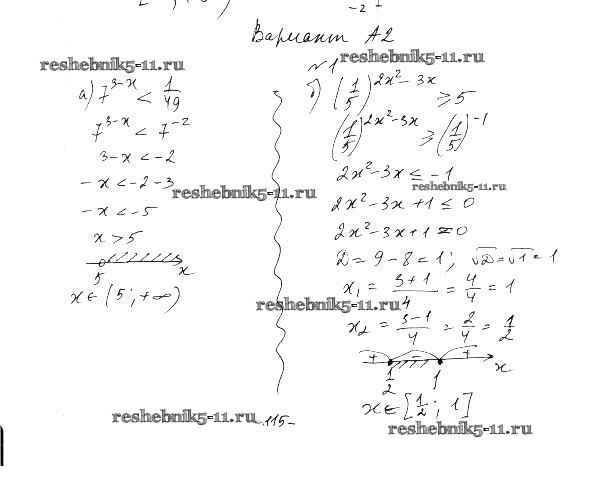 -2
Вариант А2
reshebnik5-11.ru
reshebnik5-11.ru
№1
а) 7^(3-x) < 1/49
7^(3-x) < 7^(-2)
3-x < -2
-x < -2-3
reshebnik5-11.ru
-x < -5
x > 5
5 x
x ∈ (5; +∞)
б) (1/5)^(2x²-3x) ≥ 5
(1/5)^(2x²-3x) ≥ (1/5)^(-1)
2x²-3x ≤ -1
reshebnik5-11.ru
2x²-3x+1 ≤ 0
2x²-3x+1 = 0
D = 9-8 = 1; √D = √1 = 1
x₁ = (3+1)/4 = 4/4 = 1
reshebnik5-11.ru
x₂ = (3-1)/4 = 2/4 = 1/2
+ - +
1/2 1 x
x ∈ [1/2; 1]
reshebnik5-11.ru
-115-
reshebnik5-11.ru